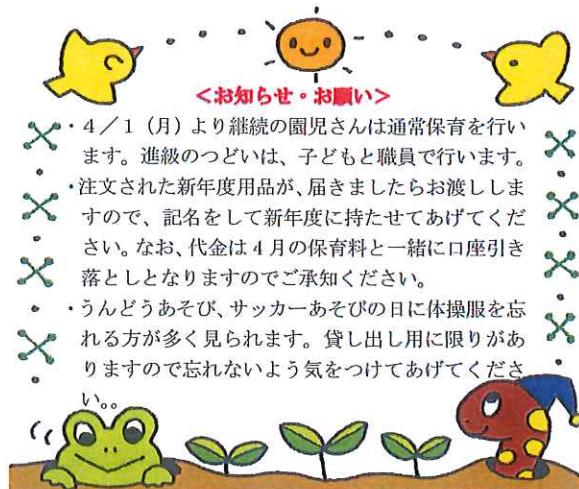 <お知らせ・お願い>
・4／1（月）より継続の園児さんは通常保育を行い
ます。進級のつどいは、子どもと職員で行います。
・注文された新年度用品が、届きましたらお渡ししま
すので、記名をして新年度に持たせてあげてくだ
さい。なお、代金は4月の保育料と一緒に口座引き
落としとなりますのでご承知ください。
・うんどうあそび、サッカーあそびの日に体操服を忘
れる方が多く見られます。貸し出し用に限りがあ
りますので忘れないよう気をつけてあげてくださ
い。。